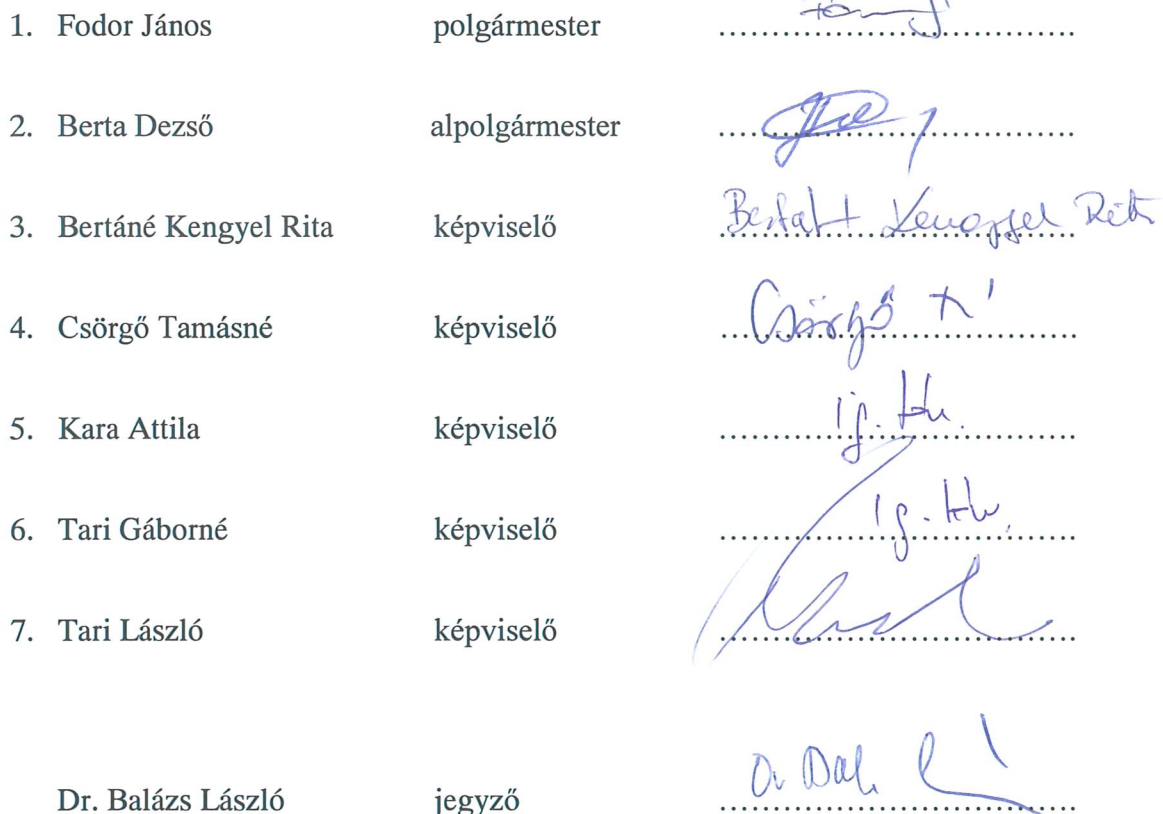 1. Fodor János polgármester
2. Berta Dezső alpolgármester
3. Bertáné Kengyel Rita képviselő Kengyel Rita
4. Csörgő Tamásné képviselő Csörgő T
5. Kara Attila képviselő ig. táv.
6. Tari Gáborné képviselő ig. táv.
7. Tari László képviselő
Dr. Balázs László jegyző Dr Bal.